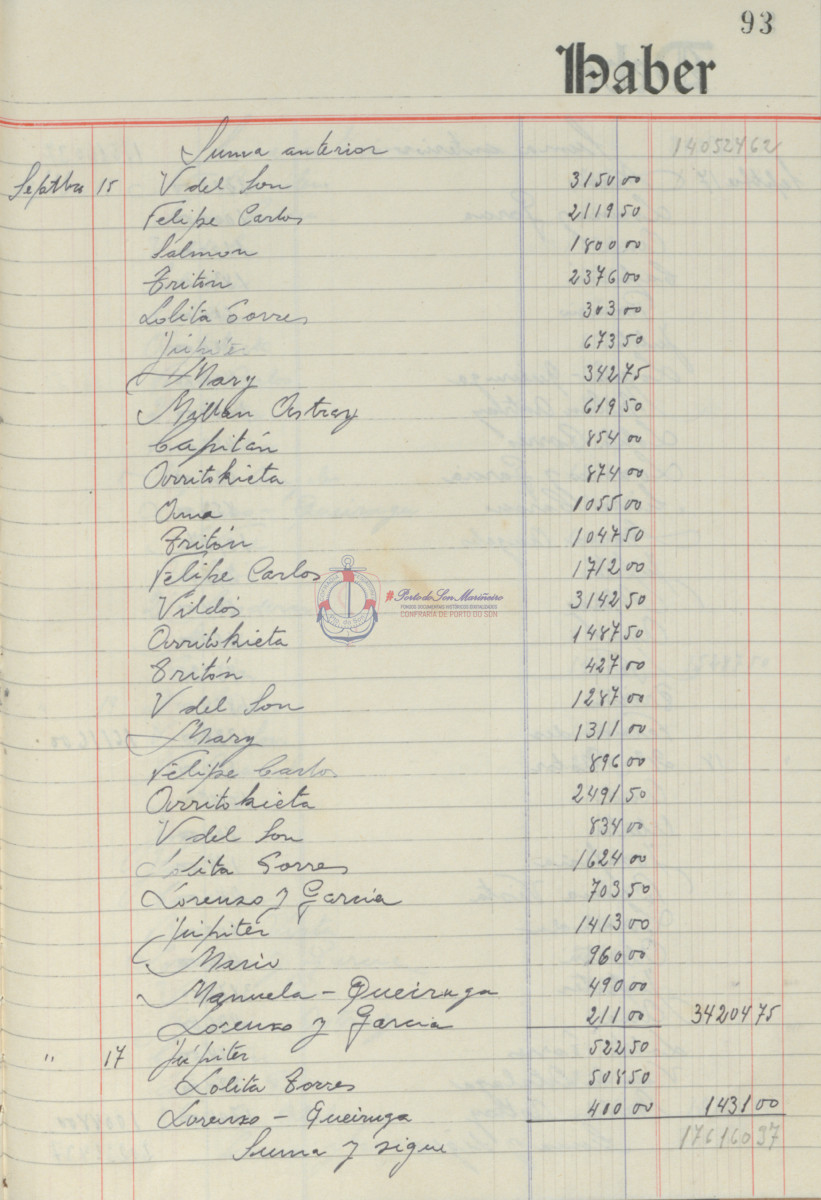 93
Haber
Suma anterior 140524 62
Septbre 15 V del Son 3150 00
Felipe Carlos 2119 50
Salmon 1800 00
Tritón 2376 00
Lolita Torres 303 00
Júpiter 673 50
Mary 342 75
Millan Astray 619 50
Capitán 854 00
Orritokieta 874 00
Oma 1055 00
Tritón 1047 50
Felipe Carlos 1712 00
Vildós 3142 50
Orritokieta 1487 50
Tritón 427 00
V del Son 1287 00
Mary 1311 00
Felipe Carlos 896 00
Orritokieta 2491 50
V del Son 834 00
Lolita Torres 1624 00
Lorenzo y García 703 50
Júpiter 1413 00
Mario 960 00
Manuela - Queiruga 490 00
Lorenzo y Garcia 211 00 34204 75
" 17 Júpiter 522 50
Lolita Torres 508 50
Lorenzo - Queiruga 400 00 1431 00
Suma y sigue 176160 37
#PortodoSon Mariñeiro
FONDOS DOCUMENTAIS HISTÓRICOS DIXITALIZADOS
CONFRARÍA DE PORTO DO SON